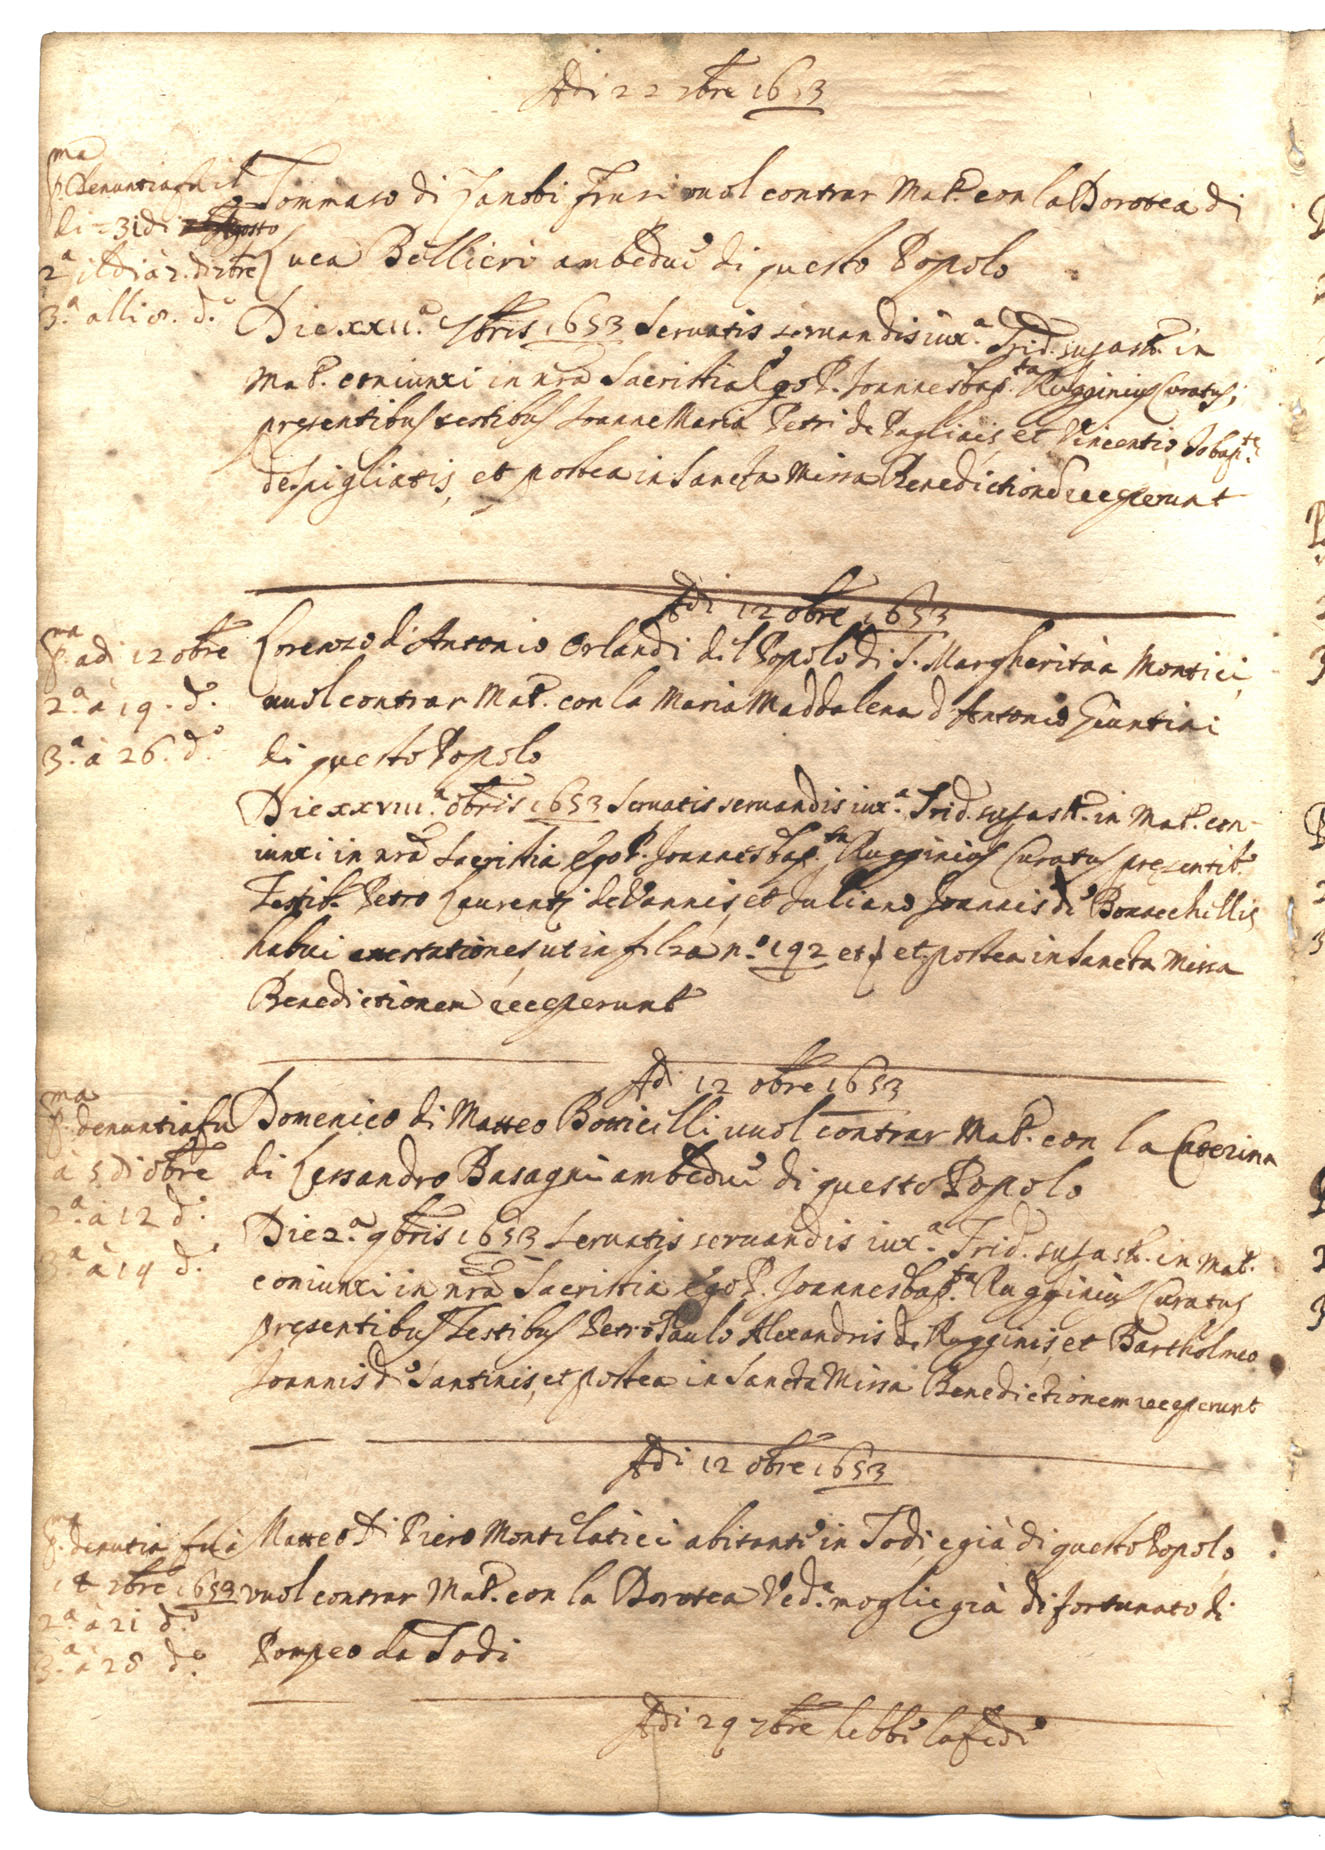 Adi 22 7bre 1653
p.ma denuntia fu il
di 31 di Agosto
2.a il di à 7. di 7bre
3.a alli 8. d.o
Tommaso di Zanobi Frusi vuol contrar Mat.o con la Dorotea di
Luca Bellieri ambedue di questo Popolo
Die xxii.a 7bris 1653 Servatis servandis iux.a Trid. sus astr. in
Mat.o coniunxi in nra Sacristia Ego P. Joannesbap.ta Rugginius Curatus,
presentibus testibus Joanne Maria Petri de Pagliais, et Vincentio Jobap.te
despigliatis, et postea in Sancta Missa Benedictione receperunt
Adi 12 8bre 1653
p.ma adi 12 8bre
2.a à 19. d.o
3.a à 26. d.o
Lorenzo di Antonio Orlandi del Popolo di S. Margherita a Montici,
vuol contrar Mat.o con la Maria Maddalena d'Antonio Giuntini
di questo Popolo
Die xxviii.a 8bris 1653 Servatis servandis iux.a Trid. sus astr. in Mat.o con-
iunxi in nra Sacristia Ego P. Joannesbap.ta Rugginius Curatus presentib.
Testib. Petro Laurentij de Vannis, et Juliano Joannis de Bonechillis
habui attestationes, ut in filza n.o 192 et et postea in Sancta Missa
Benedictionem receperunt
Adi 12 8bre 1653
p.ma denuntia fu
à 5 di 8bre
2.a à 12 d.o
3.a à 19 d.o
Domenico di Matteo Bonicelli vuol contrar Mat.o con la Caterina
di Lessandro Basagni ambedue di questo Popolo
Die 2.a 9bris 1653 Servatis servandis iux.a Trid. sus astr. in Mat.o
coniunxi in nra Sacristia Ego P. Joannesbap.ta Rugginius Curatus
presentibus Testibus Petro Paulo Alexandris de Rugginis, et Bartholmeo
Joannis de Santinis, et postea in Sancta Missa Benedictionem receperunt
Adi 12 8bre 1653
p.ma denutia fu à
14 7bre 1653
2.a à 21 d.o
3.a à 28 d.o
Matteo di Piero Montelatici abitante in Todi, e già di questo Popolo,
vuol contrar Mat.o con la Dorotea Ved.a moglie già di fortunato di
Pompeo da Todi
Adi 29 7bre hebbe la fede